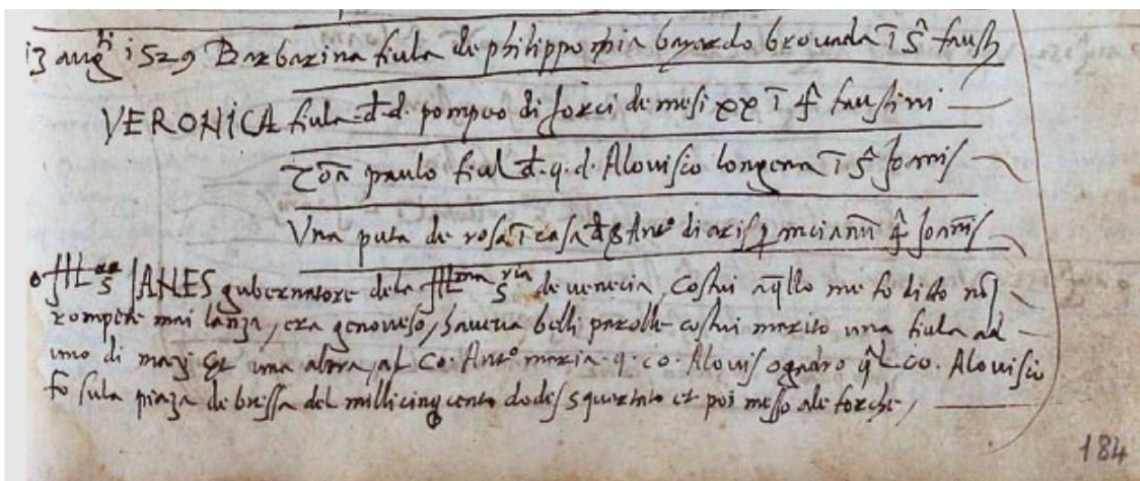 13 augti 1529 Barbarina fiula de philippo mia bayardo brouada ī S. faust
VERONICA fiula d. d. pompeo di forci de mesi xx ī S. faustini
Zoā paulo fiul d. q. d. Alouisio longena ī S. Joannis
Vna puta de rosa ī casa d Anto di S. Joannis
JANES gubernatore dela Illma Sria de venecia, Costui a qllo me fo ditto nō
rompete mai lanza, era genoveso, haueua belli parolle costui marito una fiula ad
uno di et una altra, al co. Anto. maria. q. co. Alouis ogadro ql co. Alouisio
fo sula piaza de bressa del millicinquecento dodes squartato et poi messo ale forche,
184